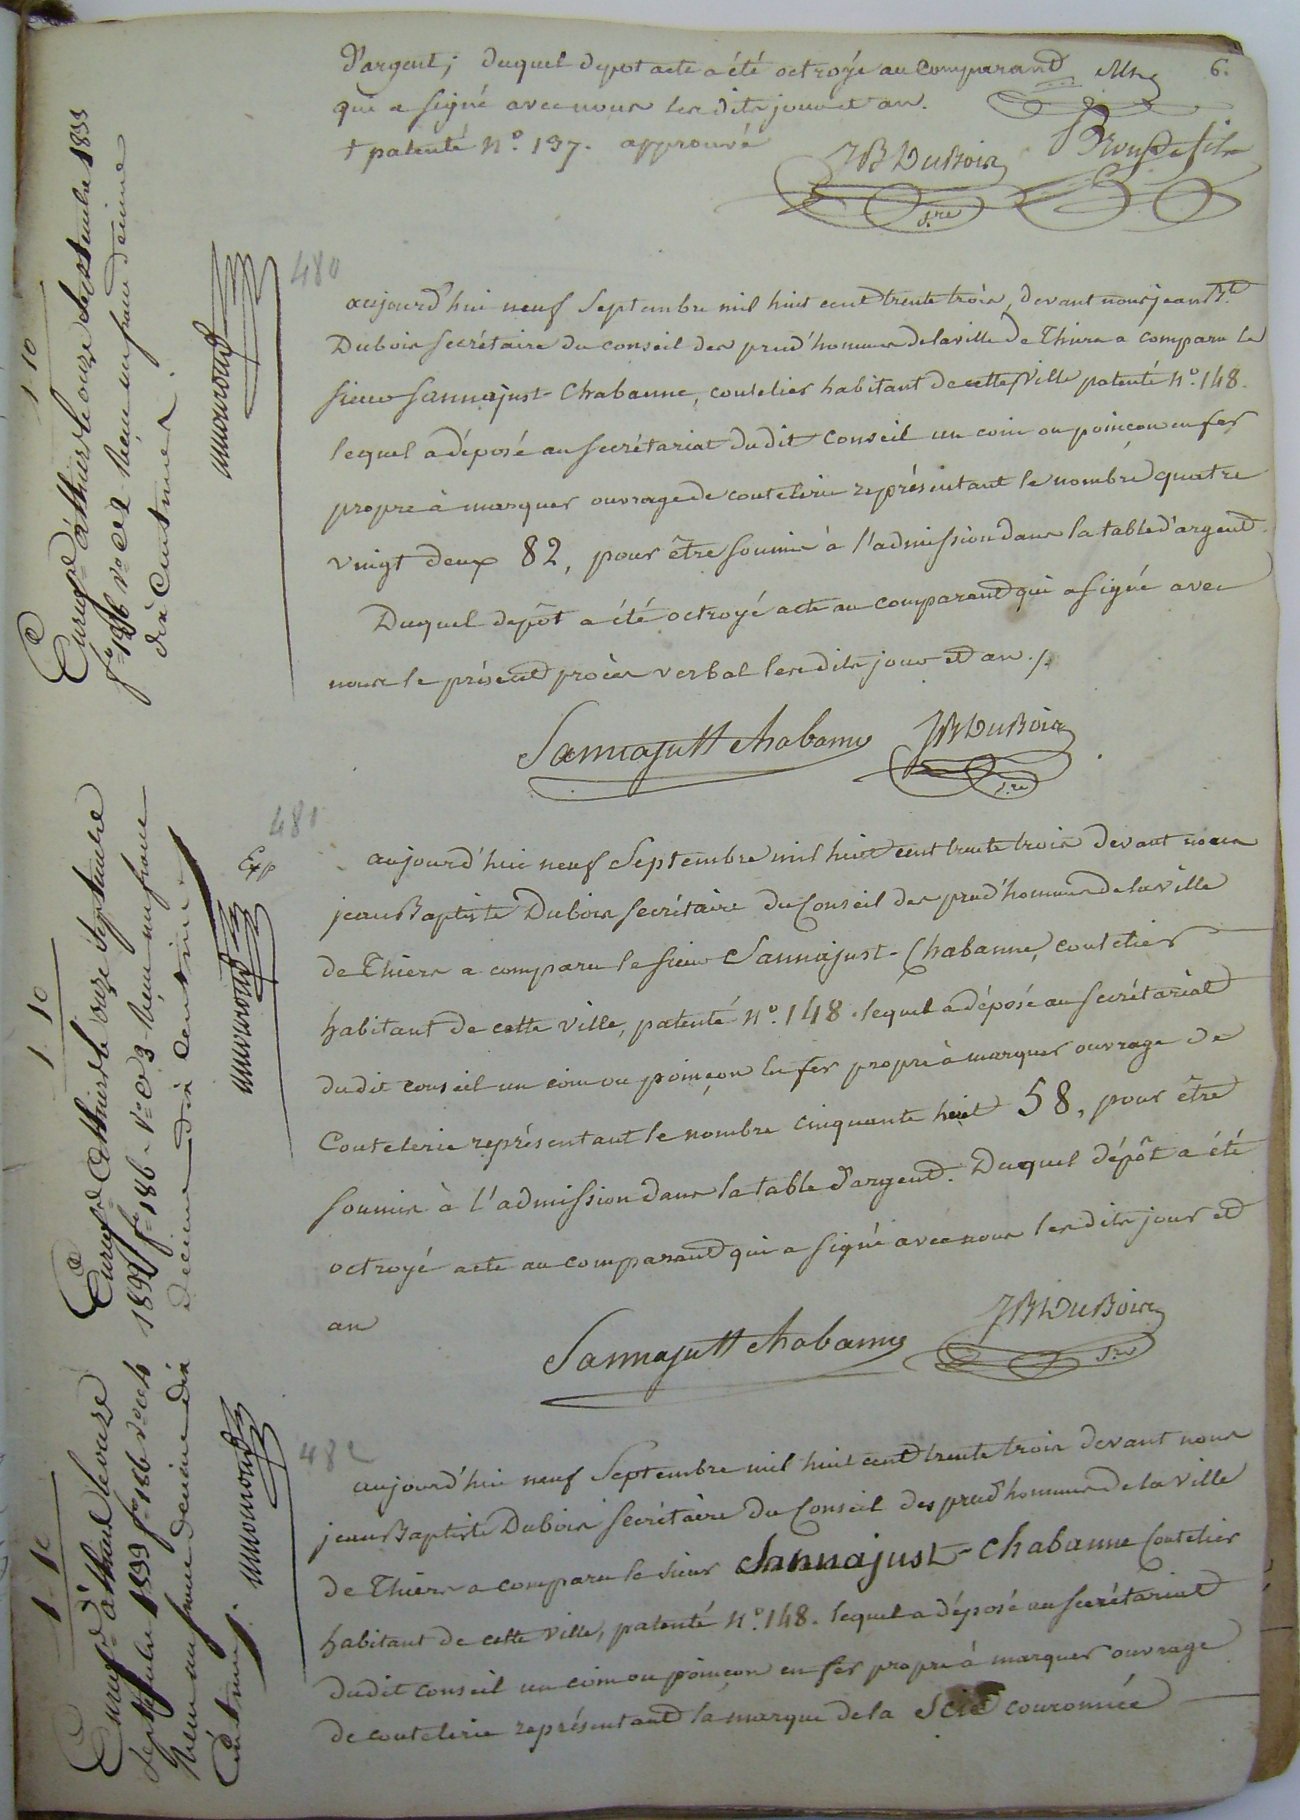 6.
d'argent; duquel depot acte a été octroyé au comparant
qui a signé avec nous lesdits jour et an.
+ patenté n.º 137. approuvé
JB DuBois
s.re
480
aujourd'hui neuf Septembre mil huit cent trente trois, devant nous jean B.te
Dubois secrétaire du conseil des prud'hommes de la ville de Thiers a comparu le
sieur Sannajust-Chabanne, coutelier habitant de cette ville patenté n.º 148.
lequel a déposé au secrétariat dudit conseil un coin ou poinçon en fer
propre à marquer ouvrage de coutelerie représentant le nombre quatre
vingt deux 82, pour être soumis à l'admission dans la table d'argent.
Duquel depôt a été octroyé acte au comparant qui a signé avec
nous le présent procès verbal lesdits jour et an ./.
Sannajust chabanne JB DuBois
s.re
481
Exp
aujourd'hui neuf Septembre mil huit cent trente trois devant nous
jean Baptiste Dubois secrétaire du Conseil des prud'hommes de la ville
de Thiers a comparu le sieur Sannajust-Chabanne, coutelier
habitant de cette ville, patenté n.º 148. lequel a déposé au secrétariat
dudit conseil un coin ou poinçon en fer propre à marquer ouvrage de
Coutelerie représentant le nombre cinquante huit 58, pour être
soumis à l'admission dans la table d'argent. Duquel dépôt a été
octroyé acte au comparant qui a signé avec nous lesdits jour et
an
Sannajust chabanne JB DuBois
s.re
482
aujourd'hui neuf Septembre mil huit cent trente trois devant nous
jean Baptiste Dubois secrétaire du Conseil des prud'hommes de la ville
de Thiers a comparu le sieur Sannajust-Chabanne Coutelier
habitant de cette ville, patenté n.º 148. lequel a déposé au secrétariat
dudit conseil un coin ou poinçon en fer propre à marquer ouvrage
de coutelerie représentant la marque de la Scie couronnée
1 10
Enreg.é à thiers le onze septembre 1833
f.º 186 v.º c. 2 Reçu un franc decime
dix Centimes
1 10
Enreg.é à thiers le onze septembre
1833 f.º 186 v.º c. 3 Reçu un franc
decime dix Centimes
1 10
Enreg.é à thiers le onze
septembre 1833 f.º 186 v.º c. 4
Reçu un franc decime dix
Centimes